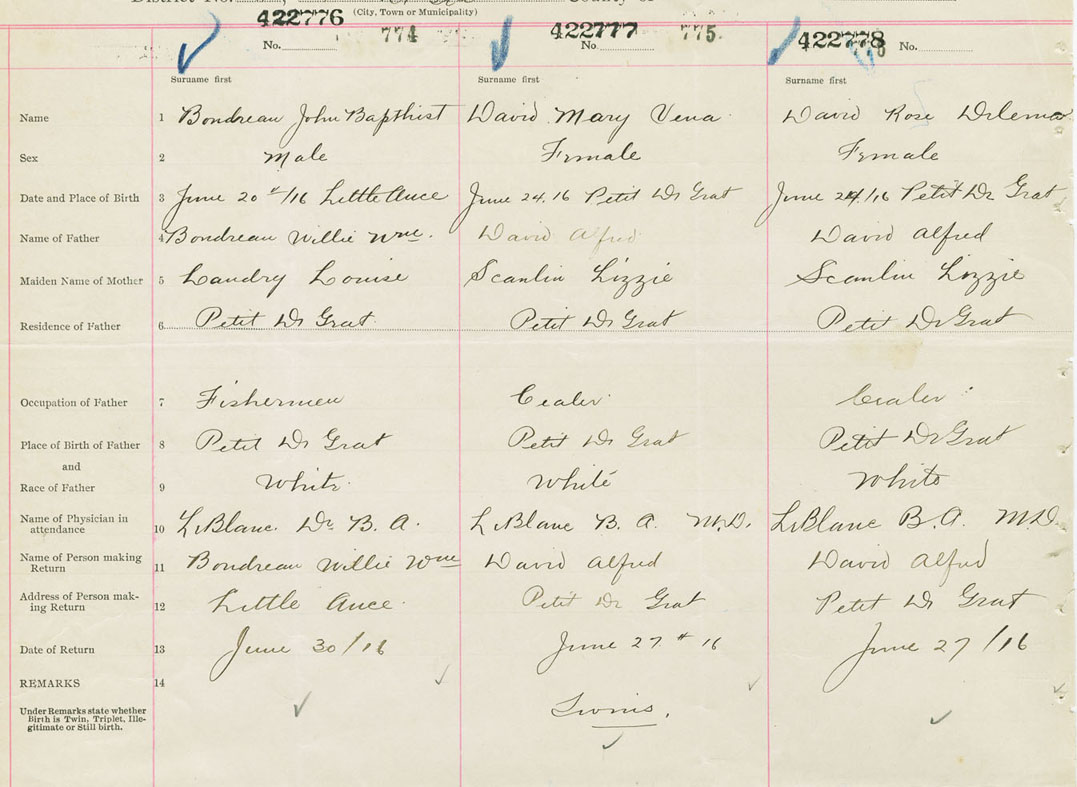 District No. County of
(City, Town or Municipality)
422776 774 422777 775 422778
No. No. No.
Surname first Surname first Surname first
Name 1 Bondreau John Bapthist David Mary Vena David Rose
Sex 2 Male Female Female
Date and Place of Birth 3 June 20 /16 Little Ance June 24. 16 Petit Dr Grat June 24/16 Petit Dr Grat
Name of Father 4 Bondreau Willie Wm. David Alfred David Alfred
Maiden Name of Mother 5 Landry Louise Scanlin Lizzie Scanlin Lizzie
Residence of Father 6 Petit Dr Grat Petit Dr Grat Petit Dr Grat
Occupation of Father 7 Fishermen
Place of Birth of Father 8 Petit Dr Grat Petit Dr Grat Petit Dr Grat
and
Race of Father 9 White White White
Name of Physician in
attendance 10 LeBlanc. Dr B. A. LeBlanc B. A. M.D. LeBlanc B. A. M.D.
Name of Person making
Return 11 Bondreau Willie Wm David Alfred David Alfred
Address of Person mak-
ing Return 12 Little Ance Petit Dr Grat Petit Dr Grat
Date of Return 13 June 30/16 June 27 16 June 27/16
REMARKS 14
Under Remarks state whether
Birth is Twin, Triplet, Ille-
gitimate or Still birth.
Twins.